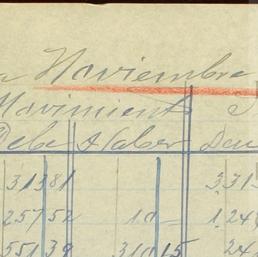 Noviembre
Movimiento
Debe Haber Deu
31381 3,313
25752 10 1,24
55139 310 15 24